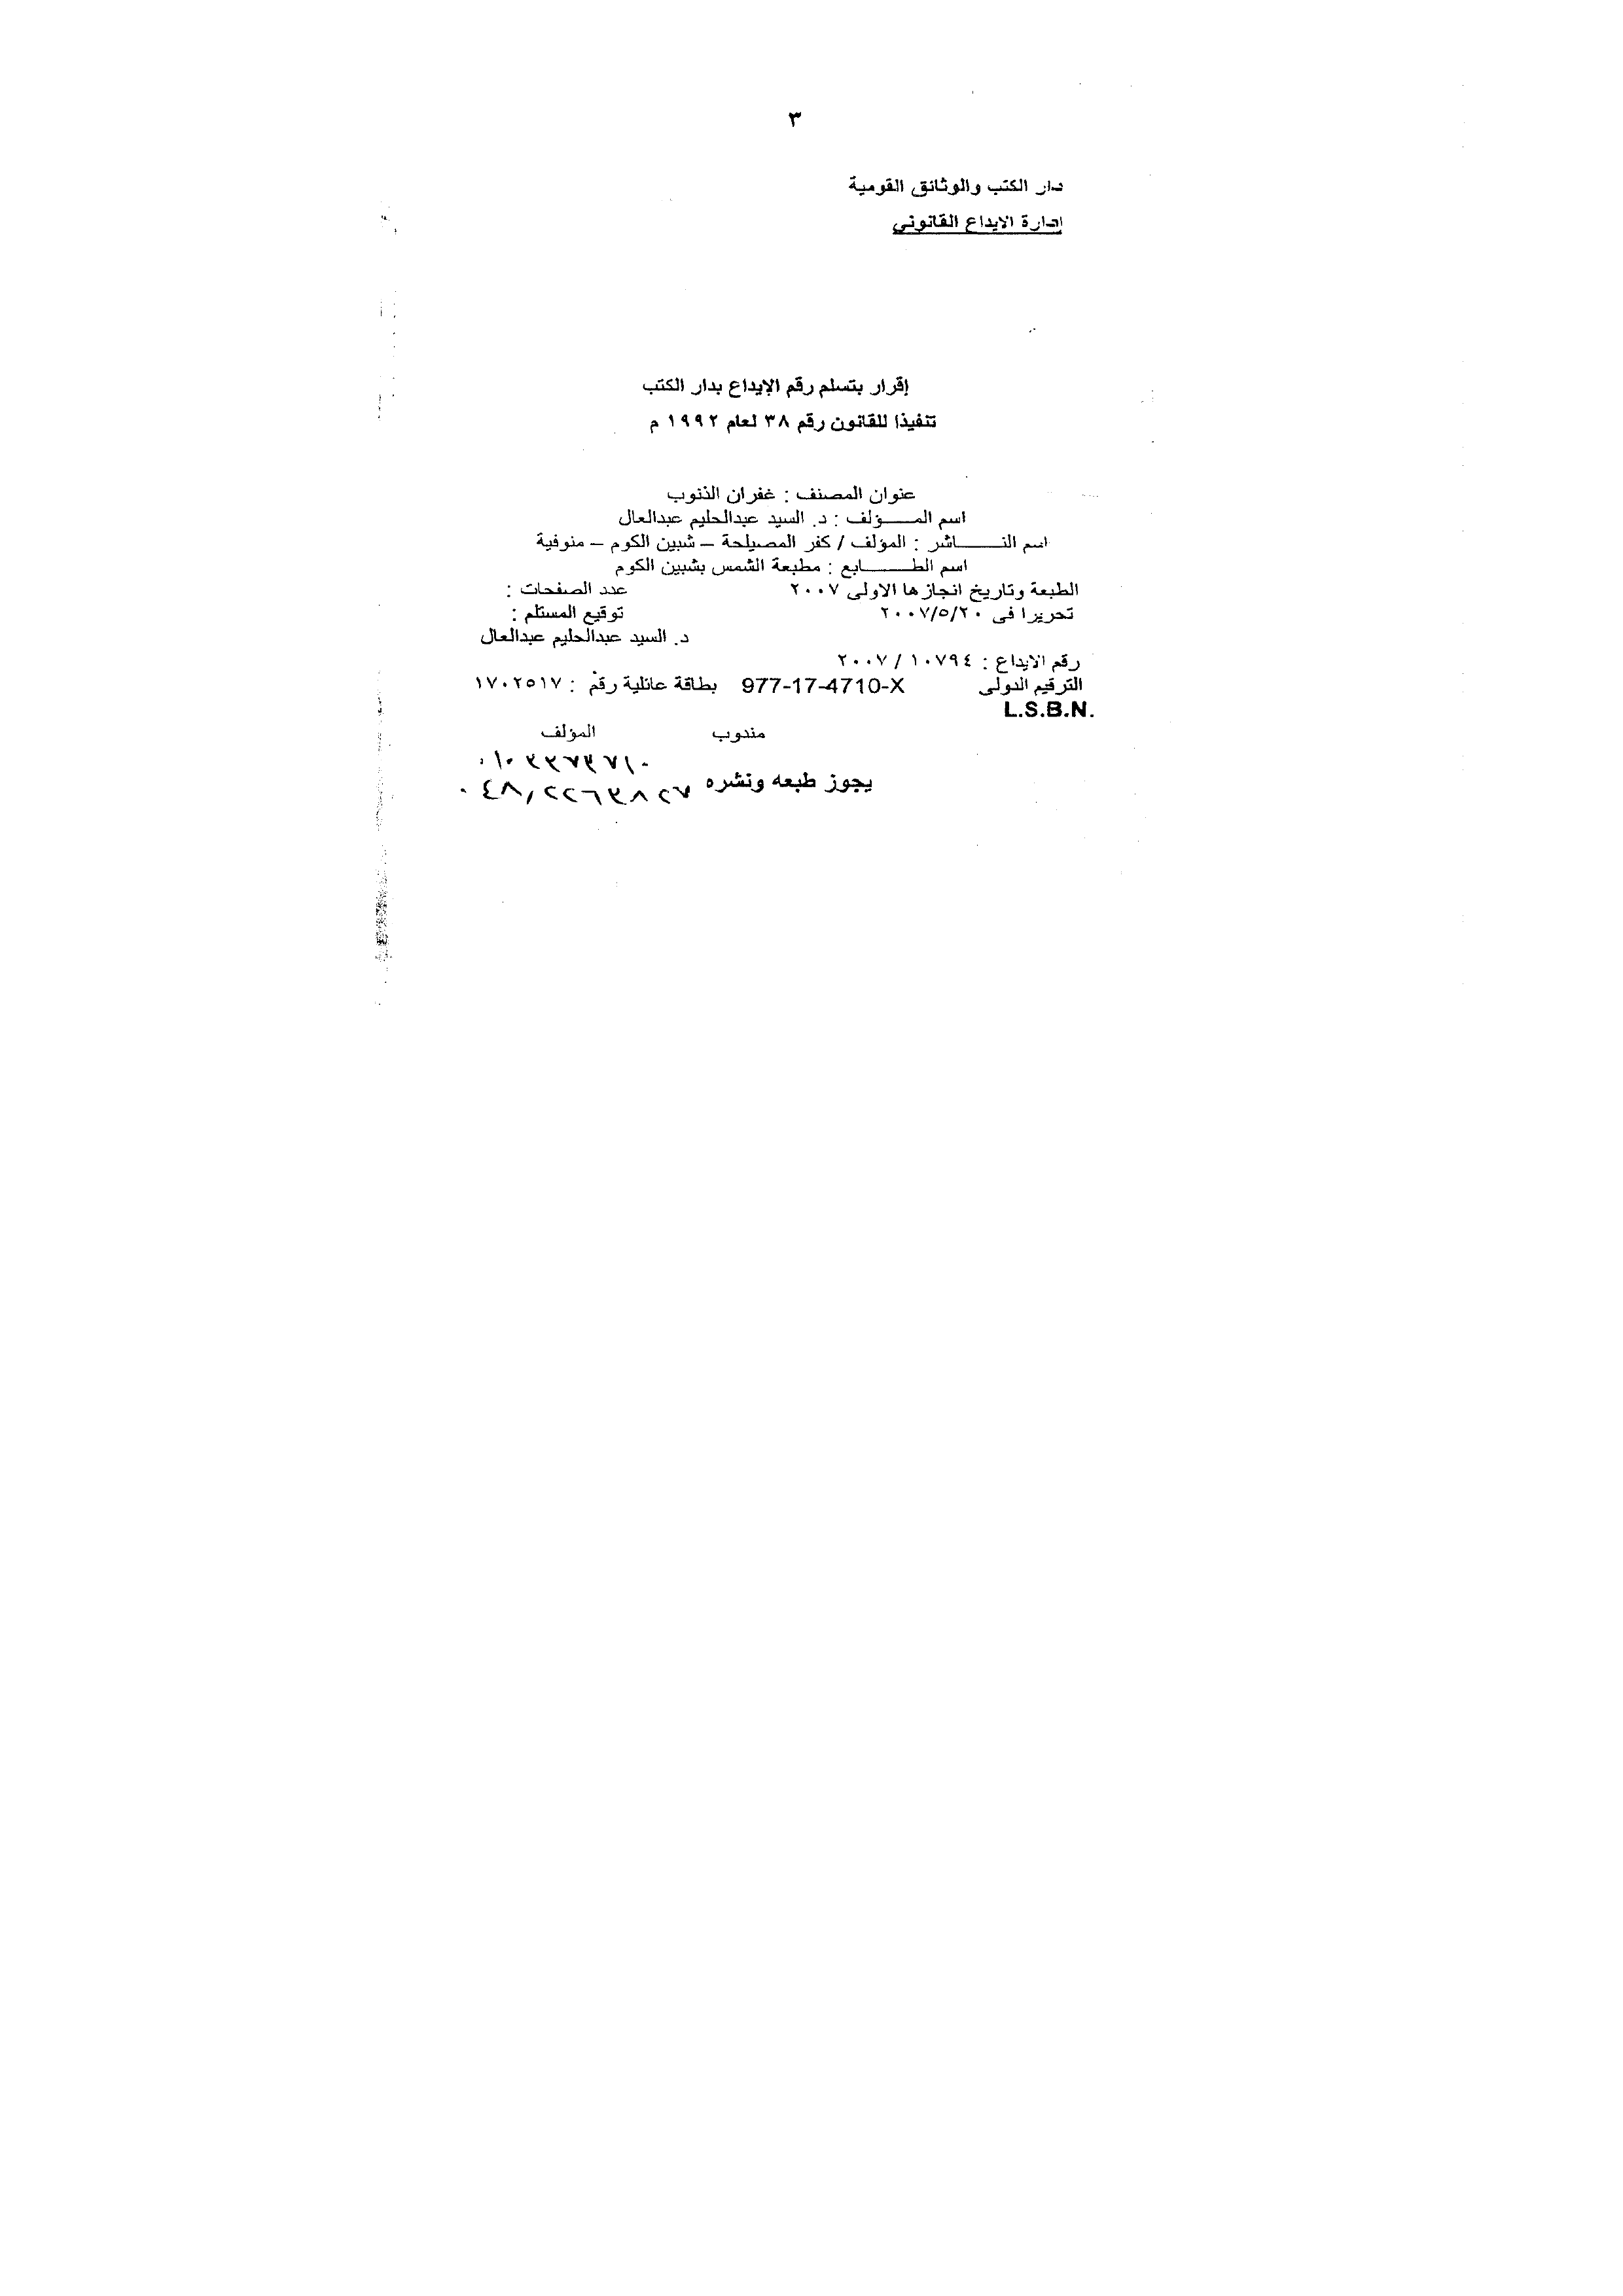 ٣
دار الكتب والوثائق القومية
ادارة الايداع القانوني
إقرار بتسلم رقم الإيداع بدار الكتب
تنفيذا للقانون رقم ٣٨ لعام ١٩٩٢ م
عنوان المصنف : غفران الذنوب
اسم المـــؤلف : د. السيد عبدالحليم عبدالعال
اسم النـــــاشر : المؤلف / كفر المصيلحة – شبين الكوم – منوفية
اسم الطـــــابع : مطبعة الشمس بشبين الكوم
الطبعة وتاريخ انجازها الاولى ٢٠٠٧ عدد الصفحات :
تحريرا فى ٢٠٠٧/٥/٢٠ توقيع المستلم :
د. السيد عبدالحليم عبدالعال
رقم الايداع : ١٠٧٩٤ / ٢٠٠٧
الترقيم الدولى 977-17-4710-X بطاقة عائلية رقم : ١٧٠٢٥١٧
L.S.B.N.
مندوب المؤلف
يجوز طبعه ونشره